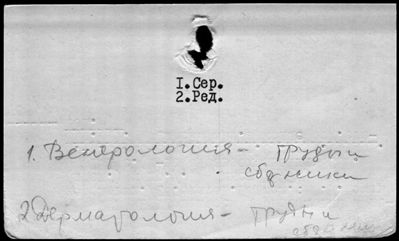 I.Сер.
2.Ред.
1. Венерология – труды и
сборники
2 Дерматология – труды и
сборники